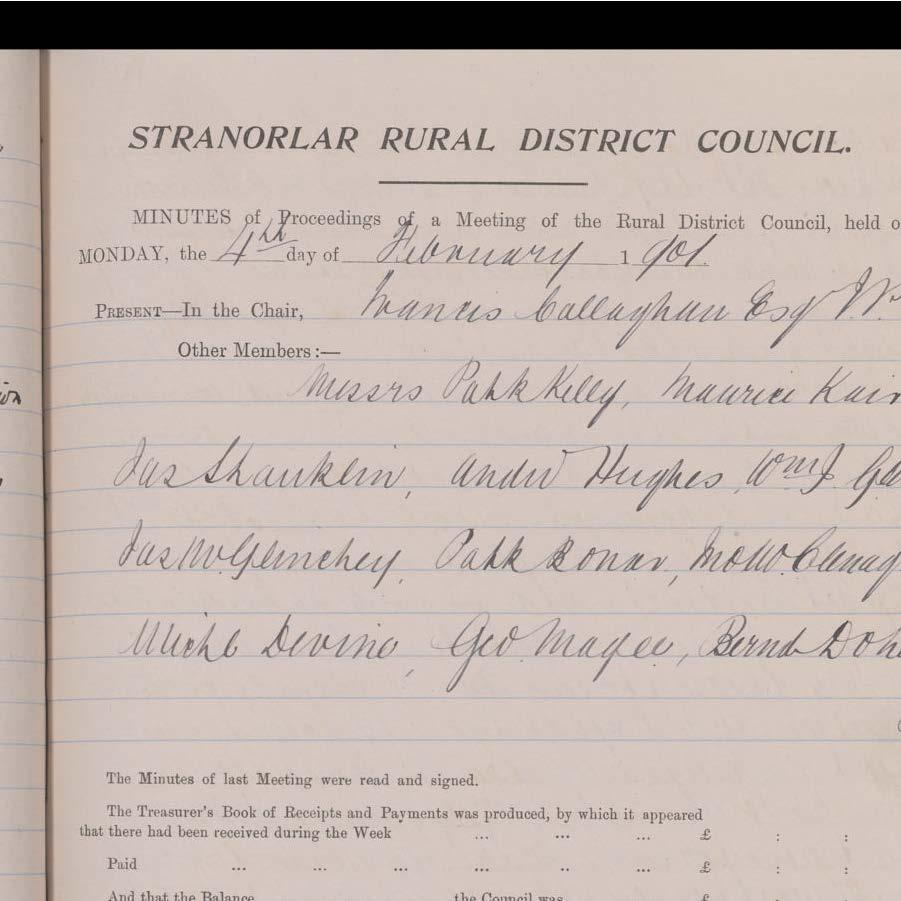 STRANORLAR RURAL DISTRICT COUNCIL.
MINUTES of Proceedings of a Meeting of the Rural District Council, held o
MONDAY, the 4th day of February 1901.
PRESENT—In the Chair, Francis Callaghan Esqr
Other Members:—
Messrs Patk Kelly, Maurice
Jas Shanklin, Andw Hughes, Wm J.
Jas McGlinchey, Patk Bonar,
Michl Devine, Geo. Magee, Bernd Doh
The Minutes of last Meeting were read and signed.
The Treasurer's Book of Receipts and Payments was produced, by which it appeared
that there had been received during the Week ... ... ... £ : :
Paid ... ... ... ... .. ... £ : :
And that the Balance the Council was £